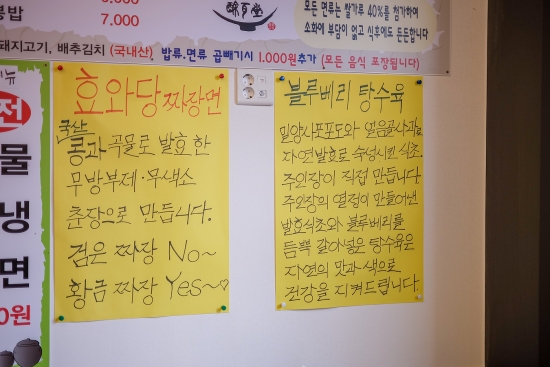 7,000
모든 면류는 쌀가루 40%를 첨가하여
소화에 부담이 없고 식후에도 든든합니다
돼지고기, 배추김치 (국내산) 밥류.면류 곱빼기시 1.000원추가 (모든 음식 포장됩니다)
전
물
냉
면
0원
효와당 짜장면
국산
콩과 곡물로 발효한
무방부제·무색소
춘장으로 만듭니다.
검은 짜장 No~
황금 짜장 Yes~♡
블루베리 탕수육
밀양사포포도와 얼음골사과
자연발효로 숙성시킨 식초.
주인장이 직접 만듭니다
주인장의 열정이 만들어낸
발효식초와 블루베리를
듬뿍 갈아넣은 탕수육은
자연의 맛과 색으로
건강을 지켜드립니다.